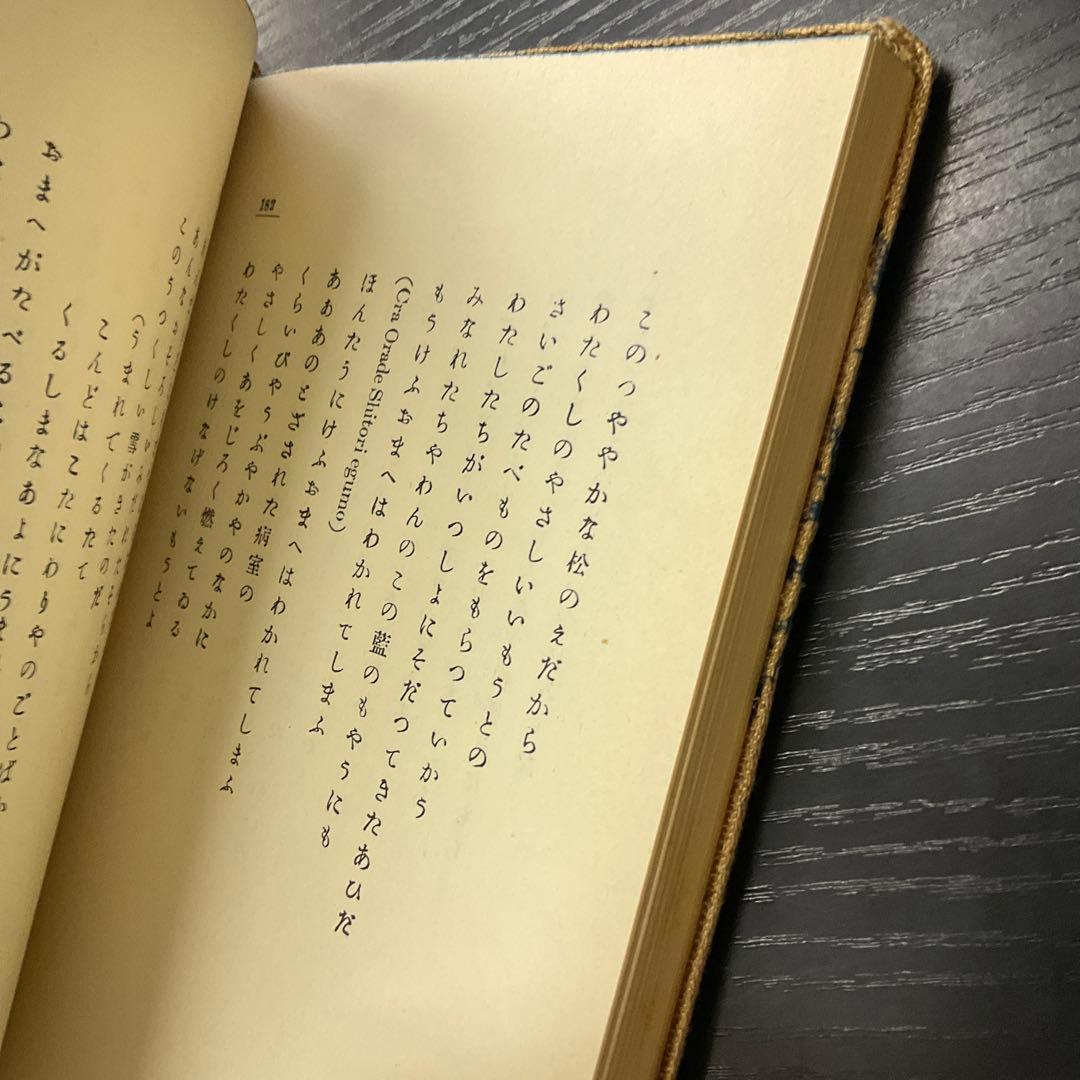 182
このつややかな松のえだから
わたくしのやさしいいもうとの
さいごのたべものをもらつていかう
わたしたちがいつしよにそだつてきたあひだ
みなれたちやわんのこの藍のもやうにも
もうけふおまへはわかれてしまふ
(Cra Orade Shitori egumo)
ほんたうにけふおまへはわかれてしまふ
あああのとざされた病室の
くらいびやうぶやかやのなかに
やさしくあをじろく燃えてゐる
わたくしのけなげないもうとよ
あんなおそろしいみだれたそ
このうつくしい雪がきたのだ
(うまれてくるたて
こんどはこたにわりやのごとばか
くるしまなあよにうま
おまへがたべる